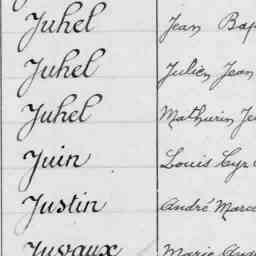 Juhel Jean Bap
Juhel Julien Jean
Juhel Mathurin Je
Juin Louis Cyr
Justin André Marce
Juvaux Marie